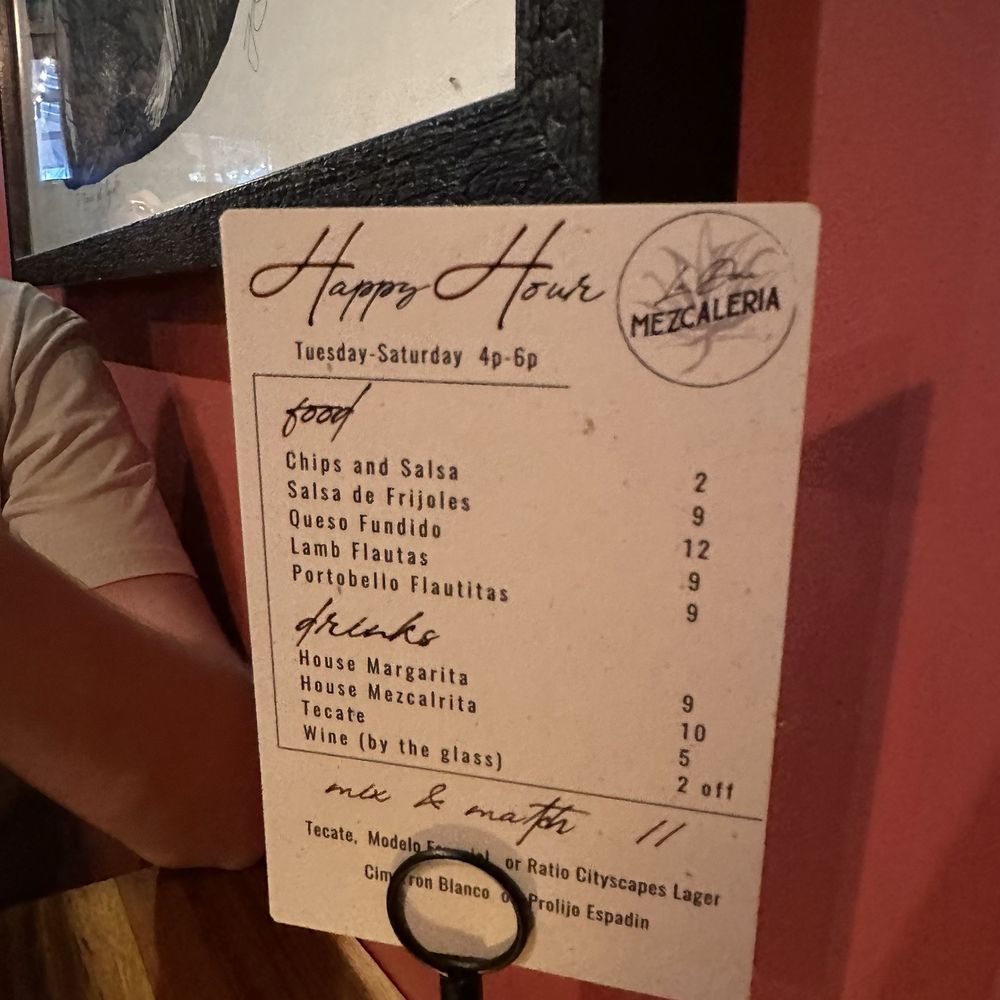 Happy Hour
MEZCALERIA
Tuesday-Saturday 4p-6p
food
Chips and Salsa 2
Salsa de Frijoles 9
Queso Fundido 12
Lamb Flautas 9
Portobello Flautitas 9
drinks
House Margarita 9
House Mezcalrita 10
Tecate 5
Wine (by the glass) 2 off
mix & match 11
Tecate, Modelo or Ratio Cityscapes Lager
Blanco Prolijo Espadin